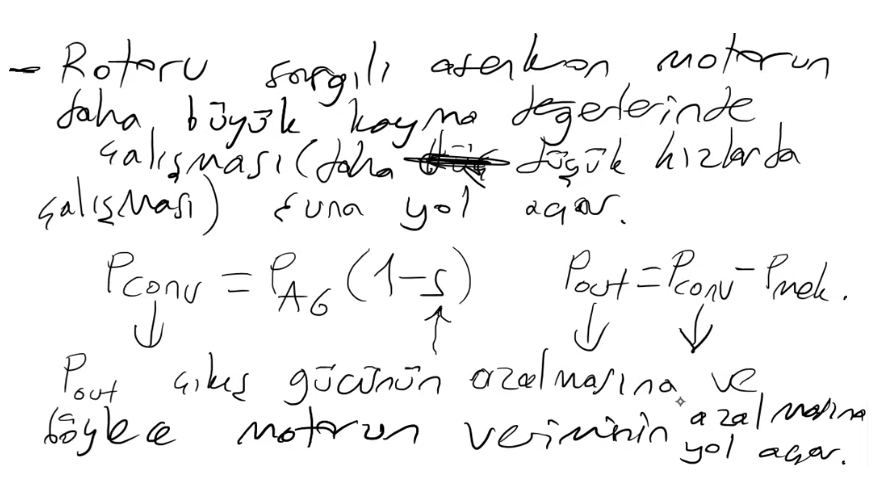 - Rotoru sargılı asenkron motorun
daha büyük kayma değerlerinde
çalışması (daha düşük hızlarda
çalışması) şuna yol açar.
P_conv = P_AG (1-s) P_out = P_conv - P_mek.
↓ ↑ ↓ ↓
P_out çıkış gücünün azalmasına ve
böylece motorun veriminin azalmasına
yol açar.